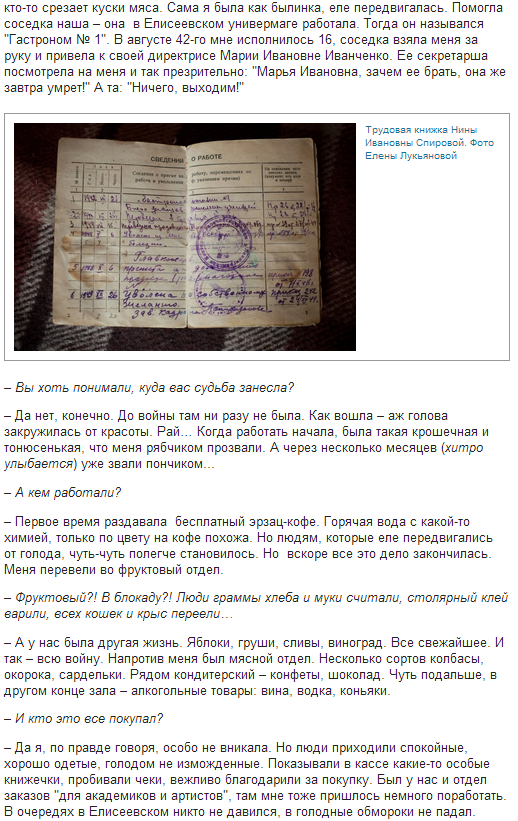 кто-то срезает куски мяса. Сама я была как былинка, еле передвигалась. Помогла
соседка наша – она  в Елисеевском универмаге работала. Тогда он назывался
"Гастроном № 1". В августе 42-го мне исполнилось 16, соседка взяла меня за
руку и привела к своей директрисе Марии Ивановне Иванченко. Ее секретарша
посмотрела на меня и так презрительно: "Марья Ивановна, зачем ее брать, она же
завтра умрет!" А та: "Ничего, выходим!"
Трудовая книжка Нины
Ивановны Спировой. Фото
Елены Лукьяновой
СВЕДЕНИЯ О РАБОТЕ
– Вы хоть понимали, куда вас судьба занесла?
– Да нет, конечно. До войны там ни разу не была. Как вошла – аж голова
закружилась от красоты. Рай… Когда работать начала, была такая крошечная и
тонюсенькая, что меня рябчиком прозвали. А через несколько месяцев (хитро
улыбается) уже звали пончиком…
– А кем работали?
– Первое время раздавала  бесплатный эрзац-кофе. Горячая вода с какой-то
химией, только по цвету на кофе похожа. Но людям, которые еле передвигались
от голода, чуть-чуть полегче становилось. Но  вскоре все это дело закончилась.
Меня перевели во фруктовый отдел.
– Фруктовый?! В блокаду?! Люди граммы хлеба и муки считали, столярный клей
варили, всех кошек и крыс переели…
– А у нас была другая жизнь. Яблоки, груши, сливы, виноград. Все свежайшее. И
так – всю войну. Напротив меня был мясной отдел. Несколько сортов колбасы,
окорока, сардельки. Рядом кондитерский – конфеты, шоколад. Чуть подальше, в
другом конце зала – алкогольные товары: вина, водка, коньяки.
– И кто это все покупал?
– Да я, по правде говоря, особо не вникала. Но люди приходили спокойные,
хорошо одетые, голодом не изможденные. Показывали в кассе какие-то особые
книжечки, пробивали чеки, вежливо благодарили за покупку. Был у нас и отдел
заказов "для академиков и артистов", там мне тоже пришлось немного поработать.
В очередях в Елисеевском никто не давился, в голодные обмороки не падал.